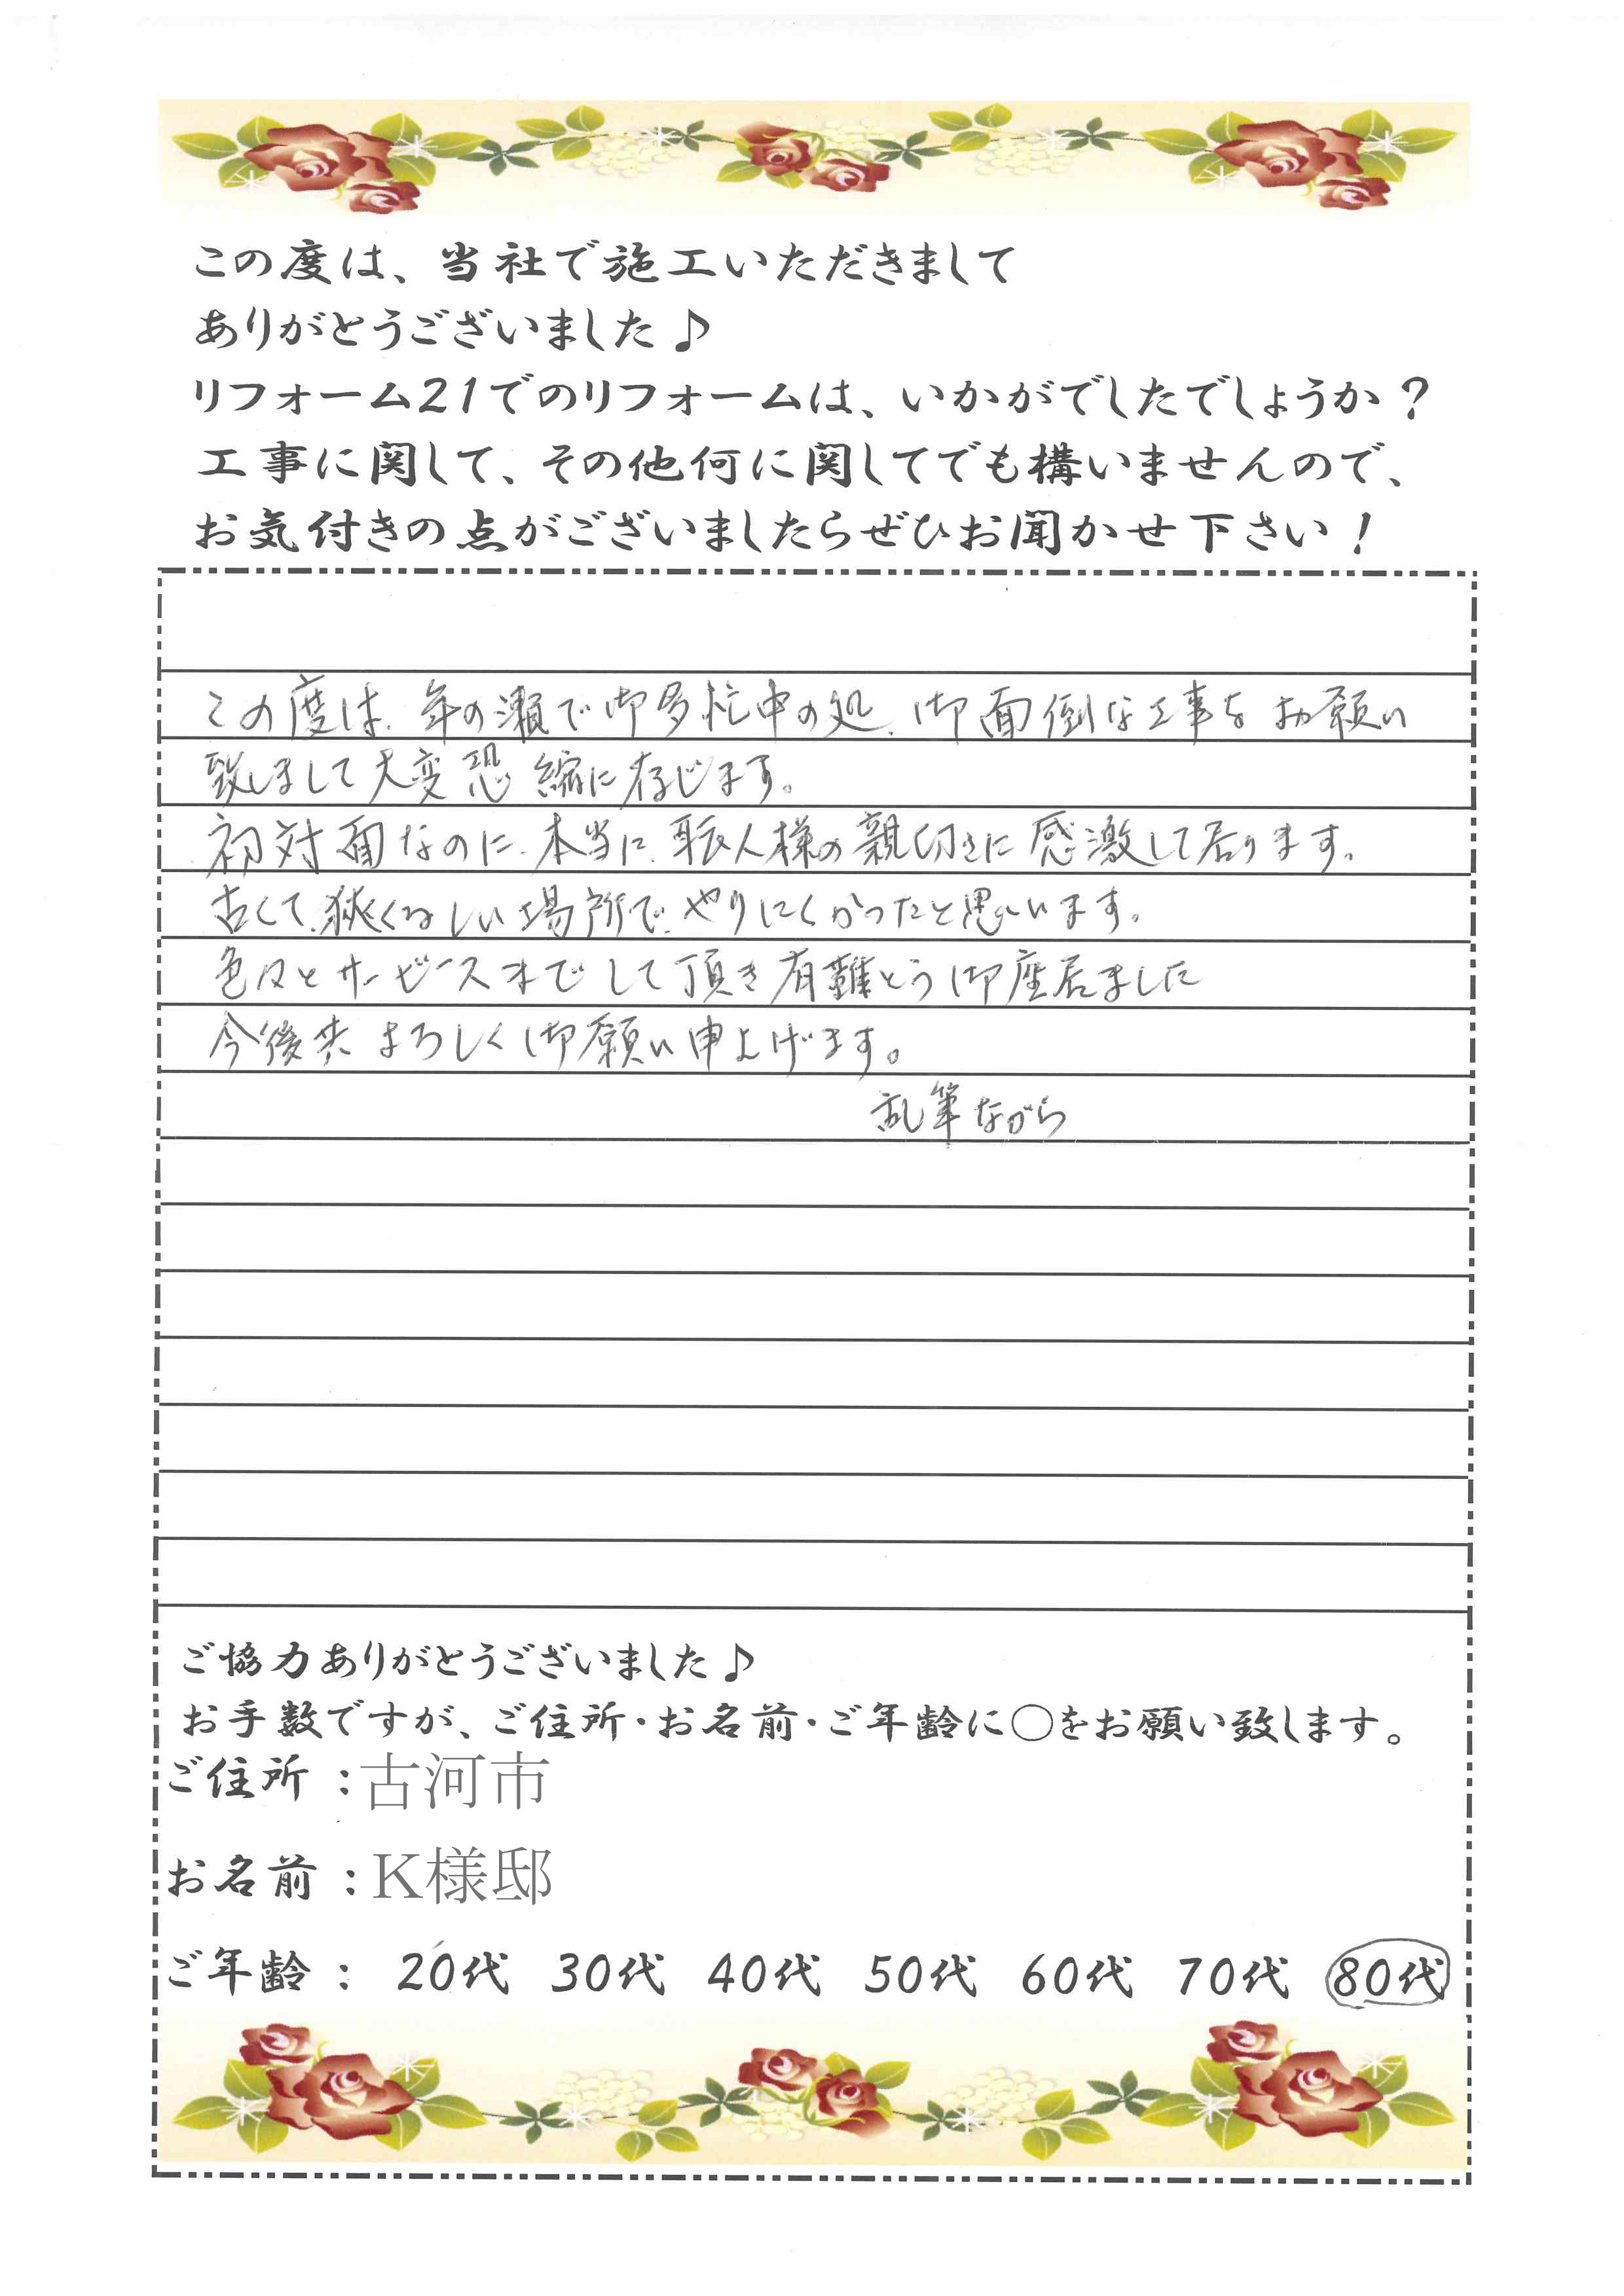 この度は、当社で施工いただきまして
ありがとうございました♪
リフォーム21でのリフォームは、いかがでしたでしょうか？
工事に関して、その他何に関してでも構いませんので、
お気付きの点がございましたらぜひお聞かせ下さい！
この度は、年の瀬で御多忙中の処、御面倒な工事をお願い
致しまして大変恐縮に存じます。
初対面なのに、本当に、職人様の親切さに感激して居ります。
古くて、狭くるしい場所で、やりにくかったと思います。
色々とサービースまでして頂き有難とう御座居ました
今後共よろしく御願い申上げます。
乱筆ながら
ご協力ありがとうございました♪
お手数ですが、ご住所・お名前・ご年齢に〇をお願い致します。
ご住所：古河市
お名前：K様邸
ご年齢： 20代 30代 40代 50代 60代 70代 80代